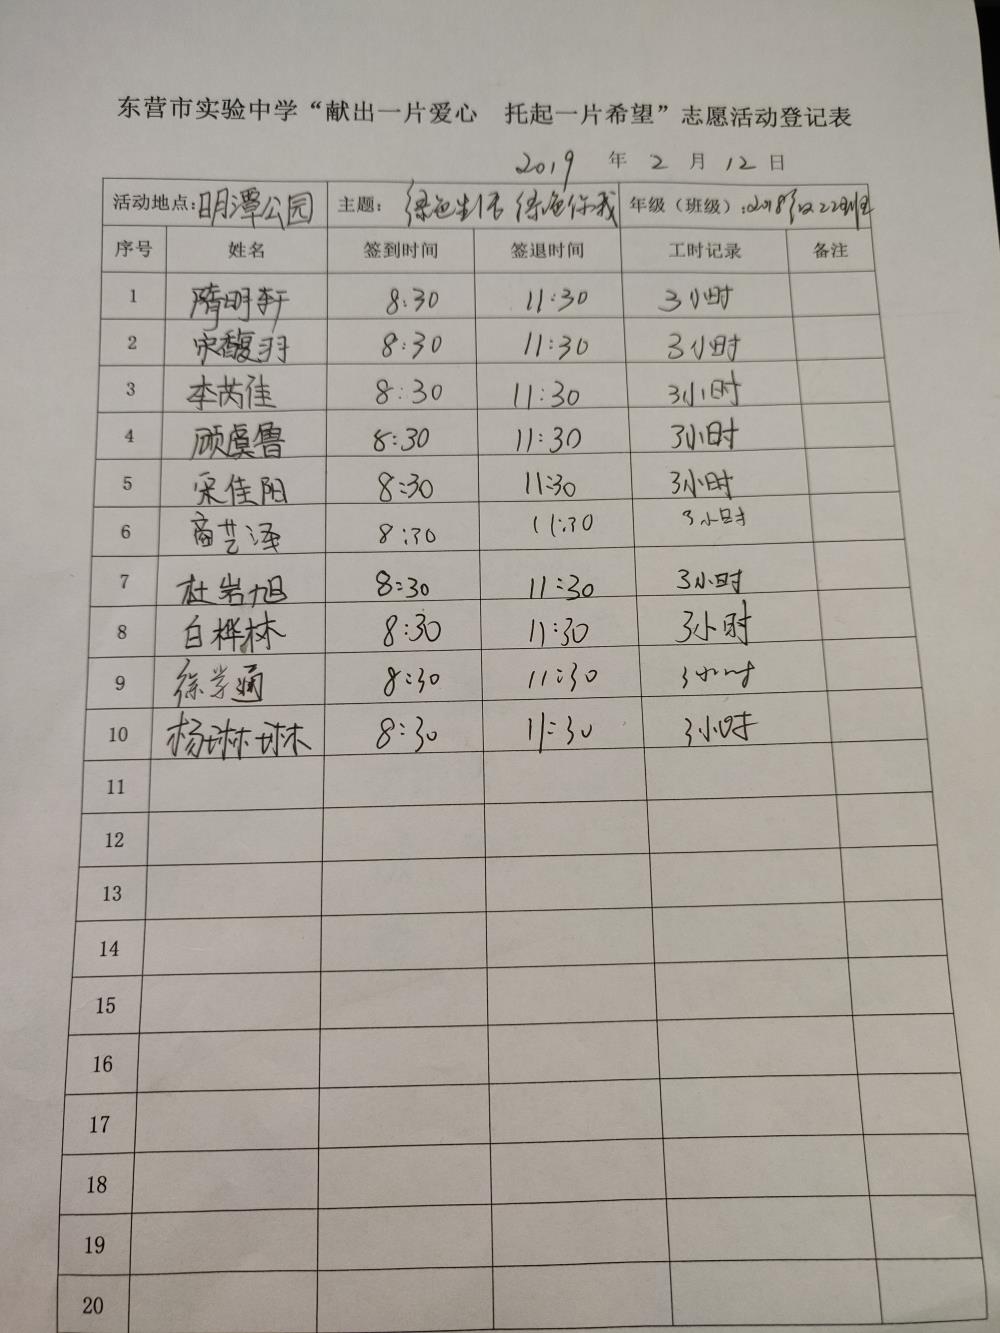 东营市实验中学“献出一片爱心 托起一片希望”志愿活动登记表
2019 年 2 月 12 日
活动地点：明潭公园 主题：绿色生活 绿色你我 年级（班级）：2018级22班
序号 姓名 签到时间 签退时间 工时记录 备注
1 隋明轩 8:30 11:30 3小时
2 宋馥羽 8:30 11:30 3小时
3 李芮佳 8:30 11:30 3小时
4 顾虞鲁 8:30 11:30 3小时
5 宋佳阳 8:30 11:30 3小时
6 商艺泽 8:30 11:30 3小时
7 杜岩旭 8:30 11:30 3小时
8 白桦林 8:30 11:30 3小时
9 徐学通 8:30 11:30 3小时
10 杨琳琳 8:30 11:30 3小时
11
12
13
14
15
16
17
18
19
20